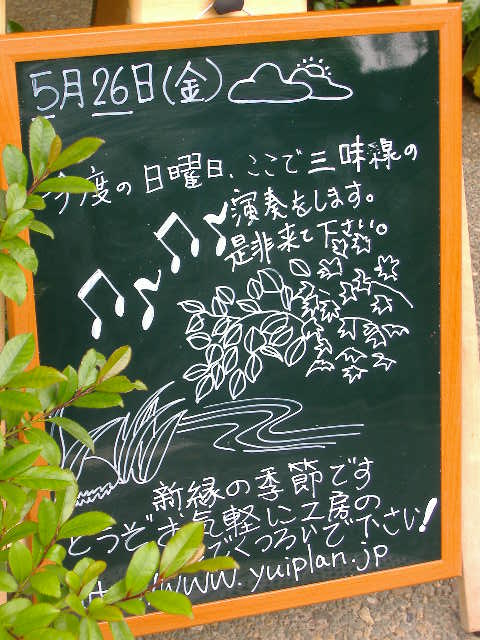 5月26日(金)
今度の日曜日、ここで三味線の
演奏をします。
是非来て下さい。
新緑の季節です
どうぞお気軽に工房の
でくつろいで下さい!
www.yuiplan.jp